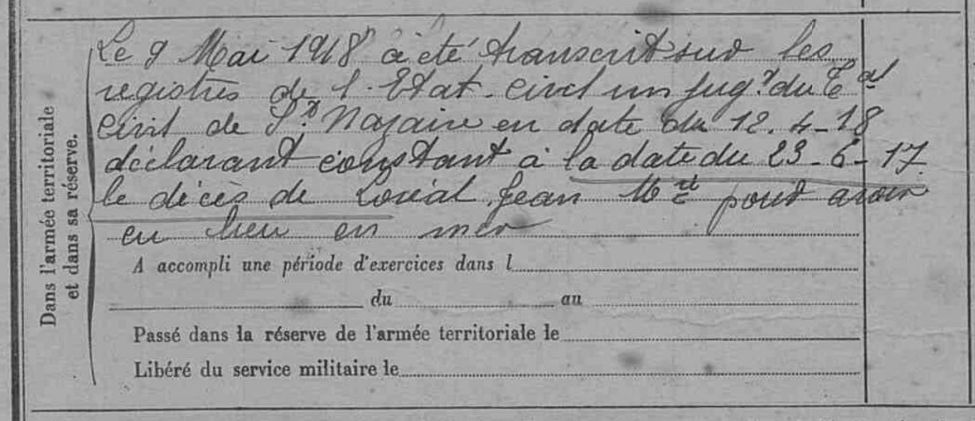 Le 9 Mai 1918 a été transcrit sur les
registres de l'Etat-civil un jugt du Tal
Civil de St Nazaire en date du 12.4-18
déclarant constant à la date du 23-6-17.
le décès de Loréal Jean Mie pour avoir
eu lieu en mer
Dans l'armée territoriale
et dans sa réserve.
A accompli une période d'exercices dans l
du au
Passé dans la réserve de l'armée territoriale le
Libéré du service militaire le